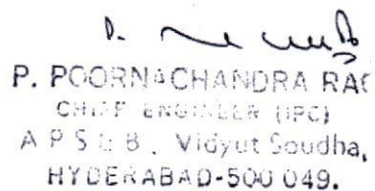 P. POORNACHANDRA RAO
CHIEF ENGINEER (IPC)
A P S E B , Vidyut Soudha,
HYDERABAD-500 049.